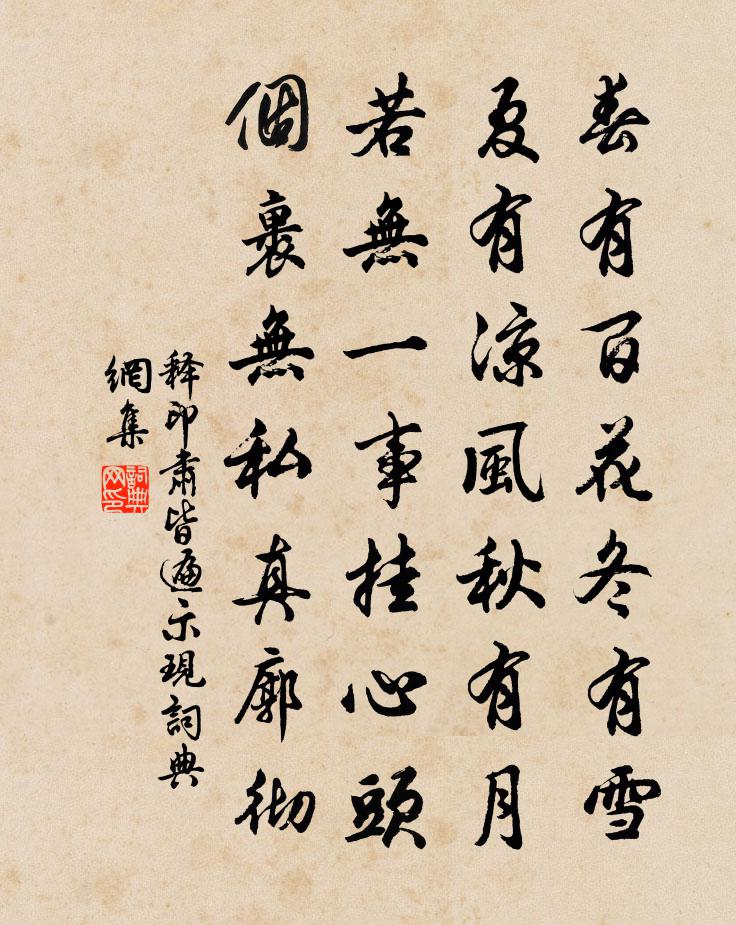 春有百花冬有雪
夏有涼風秋有月
若無一事挂心頭
個裏無私真廓彻
释印肅皆遍示現詞典
網集
詞典網印